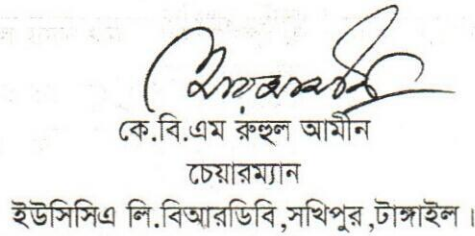 কে.বি.এম রুহুল আমীন
চেয়ারম্যান
ইউসিসিএ লি.বিআরডিবি,সখিপুর,টাঙ্গাইল।